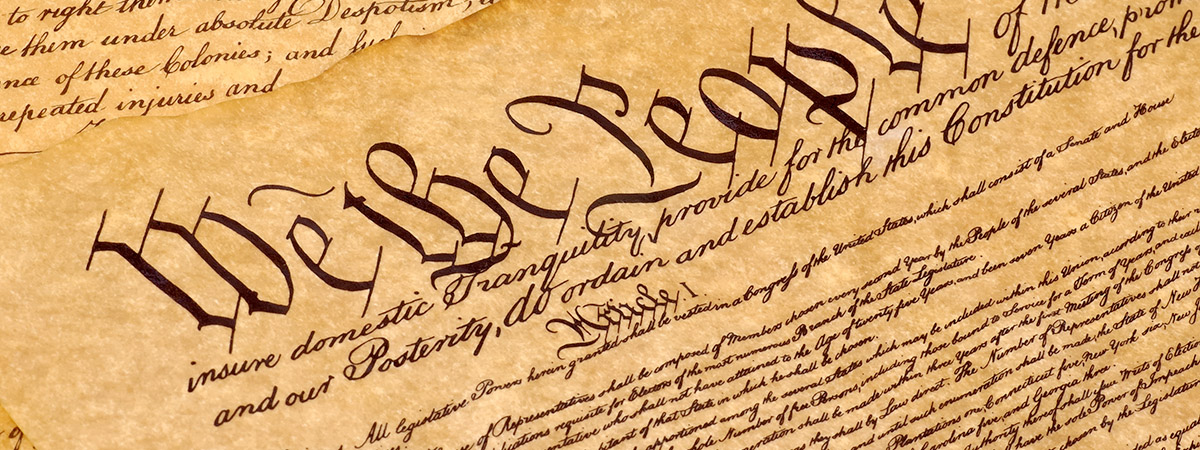 to right them
them under absolute Despotism,
of these Colonies; and
repeated injuries and
We the People
of
insure domestic Tranquility, provide for the common defence,
and our Posterity, do ordain and establish this Constitution for the
Article I
All legislative Powers herein granted shall be vested in a Congress of the United States, which shall consist of a Senate and House
of Representatives shall be composed of Members chosen every second Year by the People of the several States, and the
requisite for Electors of the most numerous Branch of the State Legislature.
who shall not have attained to the Age of twenty five Years, and been seven Years a Citizen of the United
of that State in which he shall be chosen.
apportioned among the several States which may be included within this Union, according to their
Number of free Persons, including those bound to Service for a Term of Years, and
shall be made within three Years after the first Meeting of the Congress of
they shall by Law direct. The Number of Representatives shall not
and until such enumeration shall be made, the State of New
Plantations one, Connecticut five, New York six, New
Carolina five, and Georgia three.
thereof shall Writs of
have the sole Power of
chosen by the Legislature